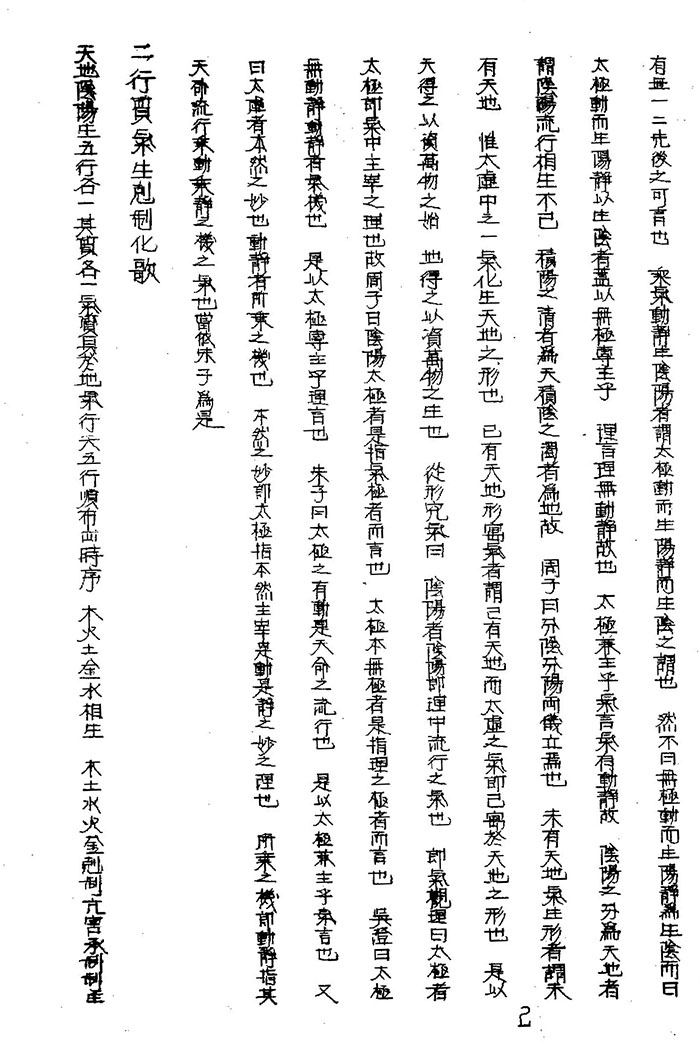 有無一二先後之可言也 乘氣動靜生陰陽者謂太極動而生陽靜而生陰之謂也 然不曰無極動而生陽靜爲生陰而曰
太極動而生陽靜以生陰者蓋以無極專主乎 理言理無動靜故也 太極兼主乎氣言氣有動靜故 陰陽之分爲天地者
謂陰陽流行相生不已 積陽之清者爲天積陰之濁者爲地故 周子曰分陰分陽兩儀立焉也 未有天地氣生形者謂未
有天地 惟太虛中之一氣化生天地之形也 已有天地形寓氣者謂已有天地而太虛之氣即已寓於天地之形也 是以
天得之以資萬物之始 地得之以資萬物之生也 從形究氣曰 陰陽者陰陽即理中流行之氣也 即氣觀理曰太極者
太極即氣中主宰之理也故周子曰陰陽太極者是指氣極者而言也 太極本無極者是指理之極者而言也 吳澄曰太極
無動靜動靜者氣機也 是以太極專主乎理言也 朱子曰太極之有動是天命之流行也 是以太極兼主乎氣言也 又
曰太虛者本然之妙也動靜者所乘之機也 本然之妙即太極指本然主宰是動是靜之妙之理也 所乘之機即動靜指其
天命流行乘動乘靜之機之氣也當依朱子爲是
二行質氣生剋制化歌
天地陰陽生五行各一其質各一氣質具於地氣行天五行順布四時序 木火土金水相生 木土水火金剋制亢害承制制生
2